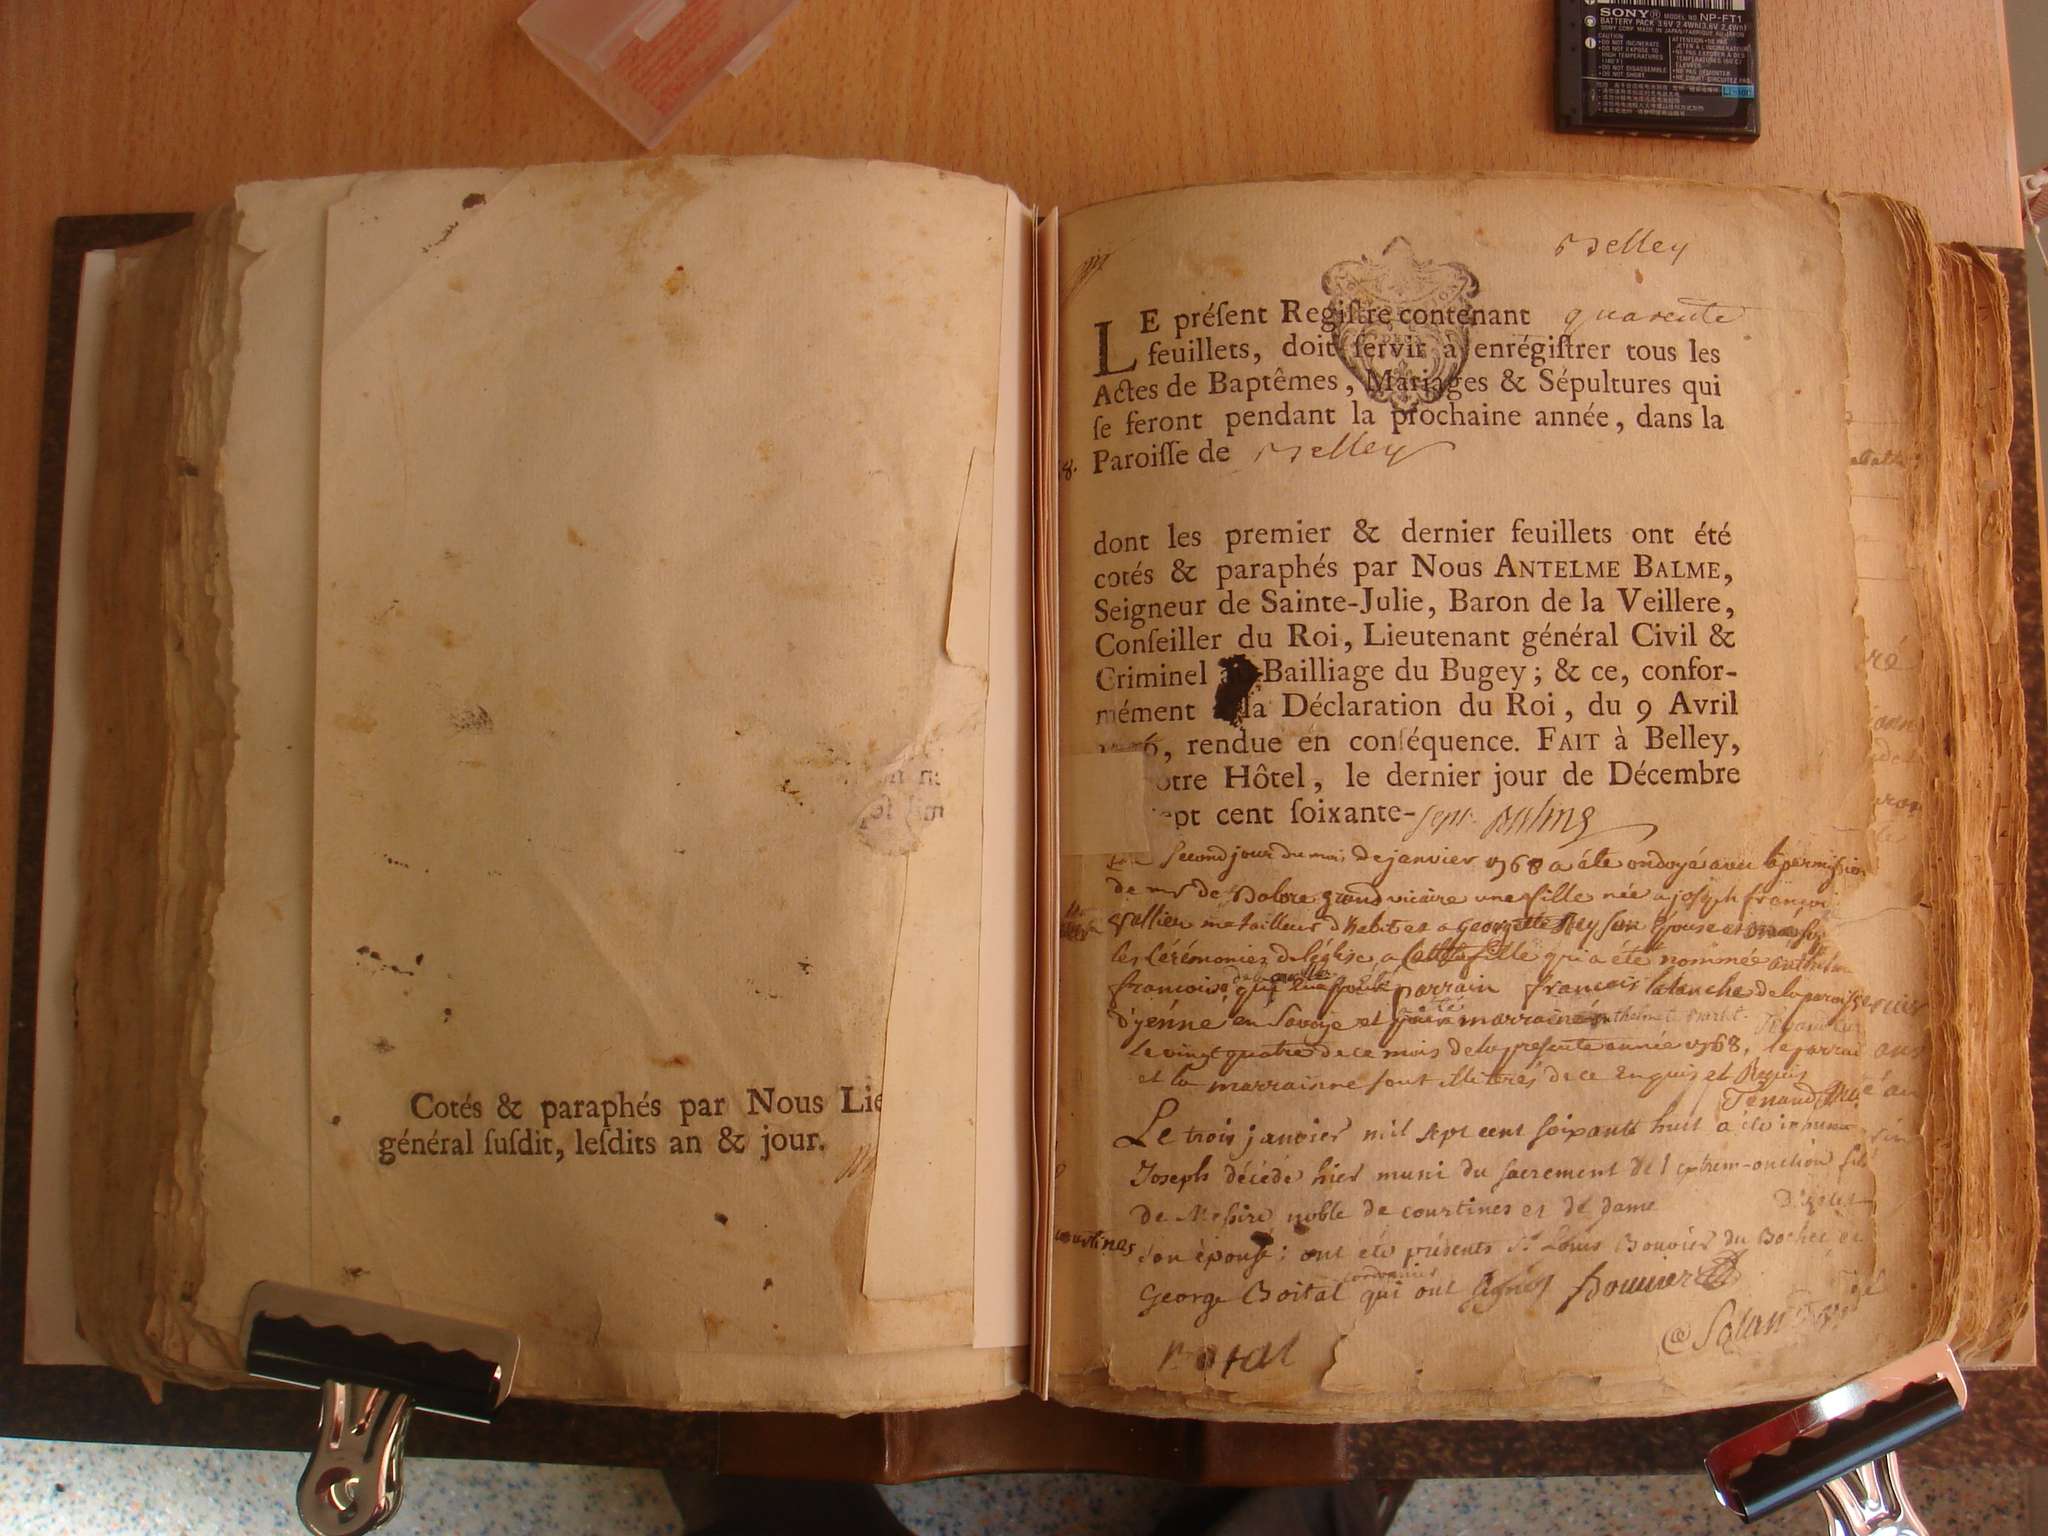 SONY® MODEL NO NP-FT1
BATTERY PACK 3.6V 2.4Wh(3,6V 2,4Wh)
CAUTION
•DO NOT INCINERATE
•DO NOT EXPOSE TO
HIGH TEMPERATURES
•DO NOT DISASSEMBLE
•DO NOT SHORT
Cotés & paraphés par Nous Lie
général ſuſdit, leſdits an & jour.
Belley
LE préſent Regiſtre contenant quarente
feuillets, doit ſervir à enrégiſtrer tous les
Actes de Baptêmes, Mariages & Sépultures qui
ſe feront pendant la prochaine année, dans la
Paroiſſe de Belley
dont les premier & dernier feuillets ont été
cotés & paraphés par Nous ANTELME BALME,
Seigneur de Sainte-Julie, Baron de la Veillere,
Conſeiller du Roi, Lieutenant général Civil &
Criminel au Bailliage du Bugey; & ce, confor-
mément la Déclaration du Roi, du 9 Avril
6, rendue en conſéquence. FAIT à Belley,
otre Hôtel, le dernier jour de Décembre
ept cent ſoixante-sept Balme
second jour du mois de janvier 1768 a été ondoyé avec la permission
de mr de grand vicaire une fille née a joseph françoi
tailleur d'habit et a georgette Rey son épouse et
les cérémonies de l'église a cette fille qui a été nommée anthelm
francoise parrain françois de la paroisse
d'yenne en Savoye et marraine
le vingt quatre de ce mois de la presente année 1768, le parrai
et la marrainne sont illiterés de ce enquis et Requis
Tenand
Le trois janvier mil sept cent soixante huit a été inhumé
Joseph décédé hier muni du sacrement de l'extrem-onction fils
de Messire noble de courtines et de dame
courtines
son épouse: ont été présents Sr Louis Bouvier du Bochet et
George Boital cordonnier qui ont signés Bouvier